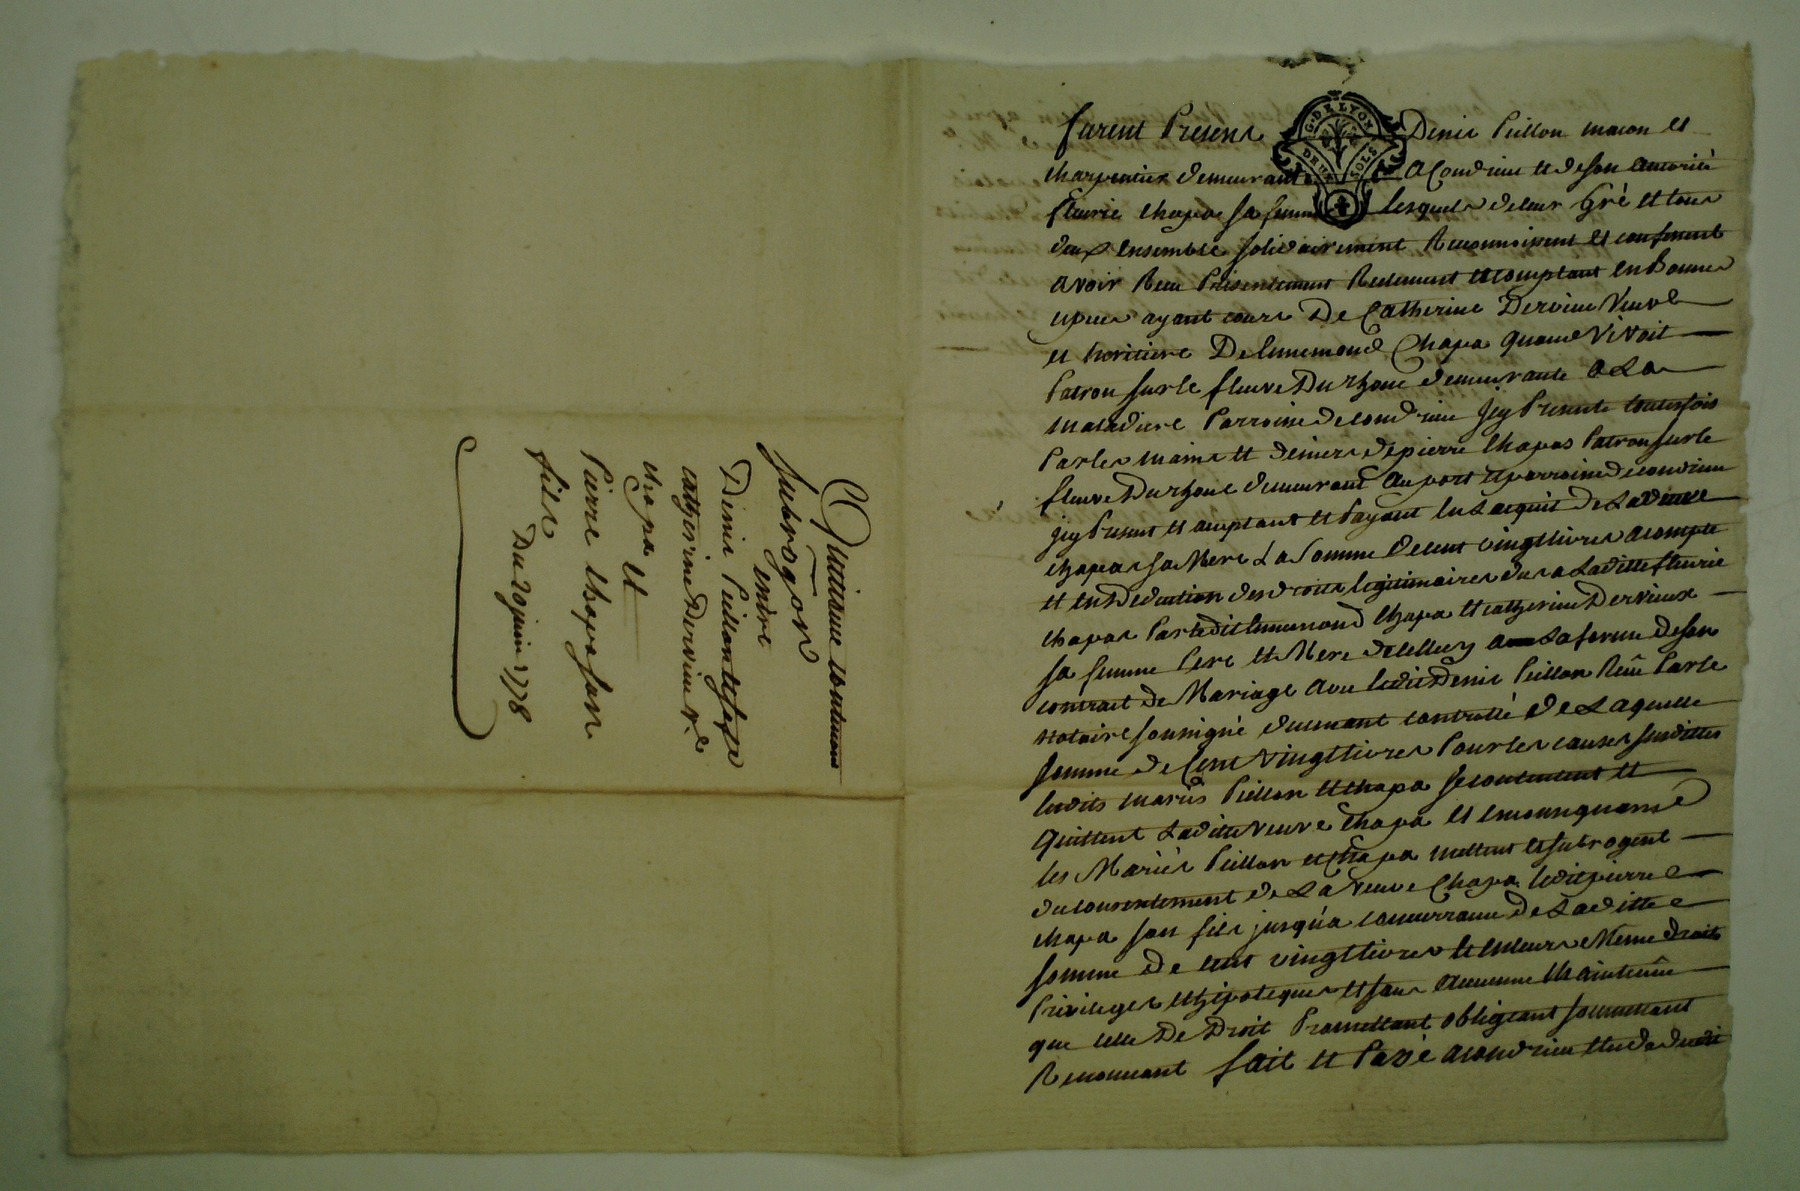 Quittance contenant
subrogãon
entre
Denis Peillon et sa fe
catherine Dervieu v.
chapa et
Pierre chapa son
fils
Du 20 juin 1778
G. DE LYON
DEUX SOLS
furent Presens Denis Peillon macon et
charpentier demeurant a Condrieu et de son autorité
fleurie chapa sa femme lesquels de leur Gré et tous
deux ensemble solidairement Reconnoissent et confessent
avoir Receu Présentement Reelement et comptant en Bonnes
espèces ayant cours De Catherine Dervieu Veuve
et heritiere De Ennemond Chapa quand Vivoit
Patron sur le fleuve Du rhone demeurante a La
maladiere Parroisse de condrieu icy Presente toutesfois
Par les mains et deniers de pierre Chapas Patron sur le
fleuve Du rhone demeurant au port et parroisse de condrieu
icy Present et acceptant et Payant en L'acquit de La Veuve
chapas sa Mere La Somme de cent vingt livres acompte
et en Deduction des droits legitimaires dus a Laditte fleurie
chapas Par ledit Ennemond Chapa et catherine Dervieux
sa femme Pere et Mere d'icelle a La forme de son
contrait de Mariage avec ledit Denis Peillon Reçu Par le
Notaire soussigné duement contrôllé de Laquelle
somme de Cent vingt livres Pour les causes susdittes
lesdits mariés Peillon et chapa se contentent et
quittent Laditte veuve Chapa et en consequence
les Mariés Peillon et Chapa mettent et subrogent
du consentement de La veuve Chapa ledit pierre
chapa son fils jusqu'a concurrance de Laditte
somme de cent vingt livres et en leurs Meme droits
Privileges et hipoteques et sans aucunne Maintenüe
que celle De Droit Promettant obligeant soumettant
Renonceant fait et Passé a condrieu